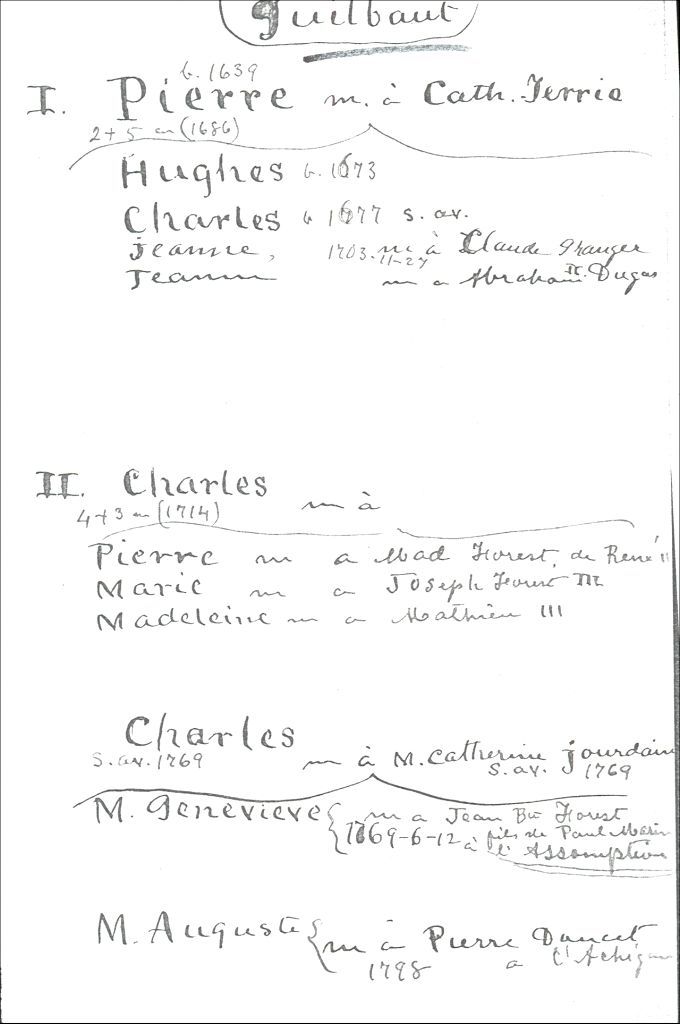 Guilbaut
b. 1639
I. Pierre m. à Cath. Terrio
2 + 5 en (1686)
Hughes b. 1673
Charles b 1677 s. av.
Jeanne, 1703. m à Claude Granger
11-27
Jeanne m a Abraham II. Dugas
II. Charles m à
4 + 3 en (1714)
Pierre m a Mad Forest, de René II
Marie m a Joseph Forest III
Madeleine m a Mathieu III
Charles
s. av. 1769 m à M. Catherine Jourdain
s. av. 1769
M. Genevieve { m a Jean Bte Forest
1769-6-12 à fils de Paul Marin
l'Assomption
M. Auguste { m à Pierre Doucet
1798 a l'Achigan